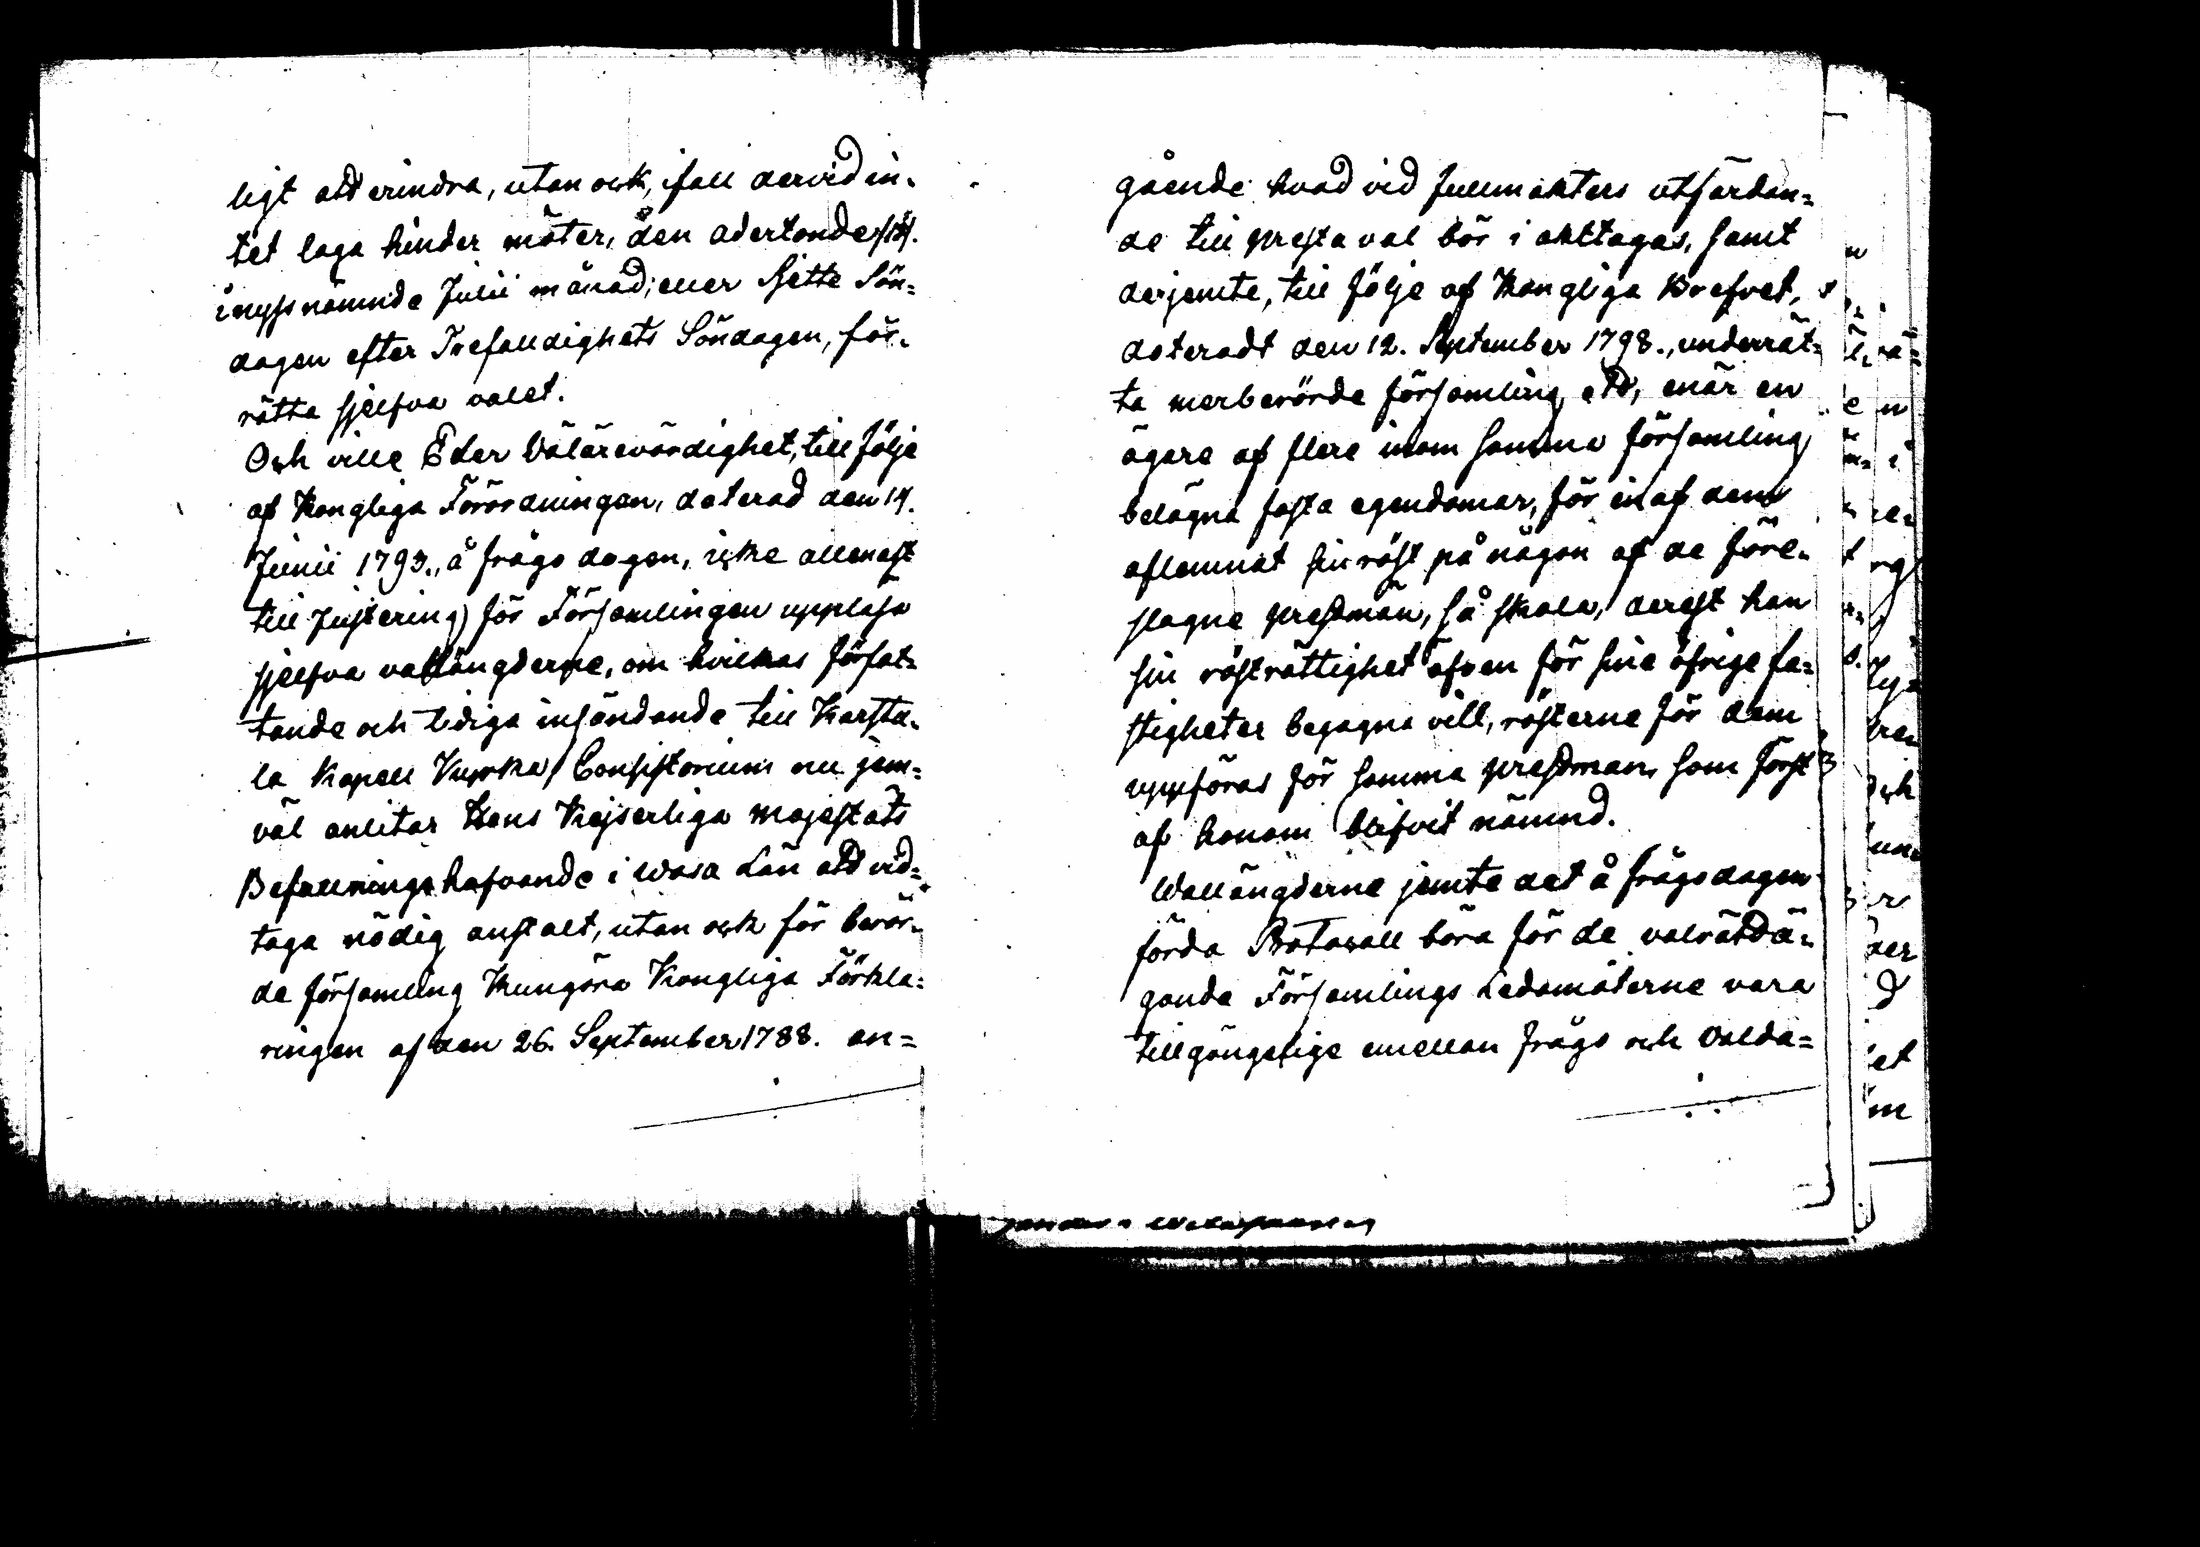 ligt att erindra, utan ock, ifall dervid in-
tet laga hinder möter, den adertonde /18/.
i nyssnämnde Julii månad, eller Sjette Sön-
dagen efter Trefalldighets Söndagen, för-
rätta sjelfva valet.
Och ville Eder Välärevördighet, till följe
af Kongliga Förordningen, daterad den 14.
Junii 1793., å frågodagen, icke allenast
till justering för Församlingen uppläsa
sjelfva vallängderne, om hvilkas förfat-
tande och tidiga insändande till Karsta-
la Kapell Kyrka, Consistorium nu jem-
väl anlitar Hens Kejserliga Majestäts
Befallningshafvande i Wasa Län att vid-
taga nödig anstalt, utan ock för berör-
de församling kungöra Kongliga Förkla-
ringen af den 26. September 1788. an=
gående hvad vid fullmakters utfärdan=
de till prestaval bör i akttagas, samt
derjemte, till följe af Kongliga Brefvet,
dateradt den 12. September 1798., underrät=
ta merberörde församling, att, enär en
ägare af flere inom samma församling
belägna fasta egendomar, för en af dem
aflemnat sin röst på någon af de före-
slagne prestmän, så skola, derest han
sin rösträttighet äfven för sine öfrige fa=
stigheter begagna vill, rösterne för dem
uppföras för samma prestman, som först
af honom blifvit nämnd.
Wallängderne jemte det å frågodagen
förda Protocoll böra för de valrättä-
gande Församlings Ledamöterne vara
tillgängelige emellan frågo och valda=